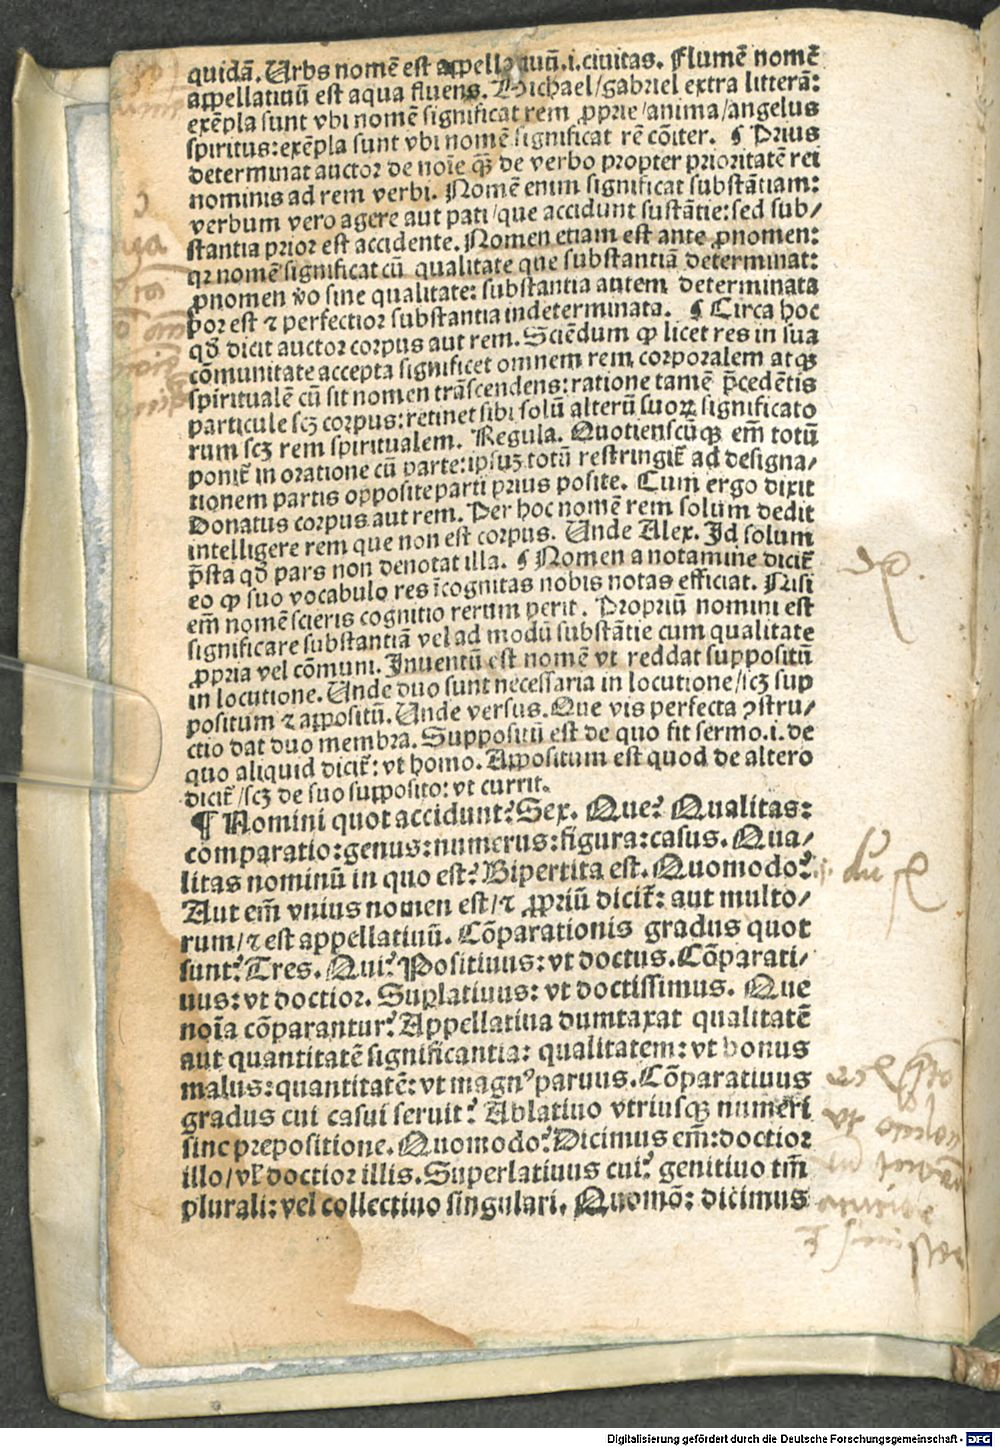 quidā. Urbs nomē est appellatiuū.i.ciuitas. Flumē nomē
appellatiuū est aqua fluens. Michael/gabriel extra litterā:
exēpla sunt vbi nomē significat rem ꝓprie/anima/angelus
spiritus:exēpla sunt vbi nomē significat rē cōiter. ¶ Prius
determinat auctor de noīe qȝ̄ de verbo propter prioritatē rei
nominis ad rem verbi. Nomē enim significat substātiam:
verbum vero agere aut pati/que accidunt sustātie:sed sub/
stantia prior est accidente. Nomen etiam est ante ꝓnomen:
qꝛ nomē significat cū qualitate que substantiā determinat:
ꝓnomen v̊o sine qualitate: substantia autem determinata
por est ⁊ perfectior substantia indeterminata. ¶ Circa hoc
qđ dicit auctor corpus aut rem. Sciēdum ꝙ licet res in sua
cōmunitate accepta significet omnem rem corporalem atqȝ
spiritualē cū sit nomen trāscendens:ratione tamē p̄cedētis
particule scȝ corpus:retinet sibi solū alterū suoꝝ significato
rum scȝ rem spiritualem. Regula. Quotienscūqȝ em̄ totū
ponit̄ in oratione cū parte:ipsuȝ totū restringit̄ ad designa/
tionem partis opposite parti prius posite. Cum ergo dixit
Donatus corpus aut rem. Per hoc nomē rem solum dedit
intelligere rem que non est corpus. Unde Alex. Id solum
p̄sta qđ pars non denotat illa. ¶ Nomen a notamine dicit̄
eo ꝙ suo vocabulo res īcognitas nobis notas efficiat. Nisi
em̄ nomē scieris cognitio rerum perit. Propriū nomini est
significare substantiā vel ad modū substātie cum qualitate
ꝓpria vel cōmuni. Inuentū est nomē vt reddat suppositū
in locutione. Unde duo sunt necessaria in locutione/scȝ sup
positum ⁊ appositū. Unde versus. Que vis perfecta ꝯstru/
ctio dat duo membra. Suppositū est de quo fit sermo.i.de
quo aliquid dicit̄: vt homo. Appositum est quod de altero
dicit̄/scȝ de suo supposito: vt currit.
¶ Nomini quot accidunt? Sex. Que? Qualitas:
comparatio:genus:numerus:figura:casus. Qua/
litas nominū in quo est? Bipertita est. Quomodo?
Aut em̄ vnius nomen est/⁊ ꝓpriū dicit̄: aut multo/
rum/⁊ est appellatiuū. Cōparationis gradus quot
sunt? Tres. Qui? Positiuus: vt doctus. Cōparati/
uus: vt doctior. Suꝑlatiuus: vt doctissimus. Que
noīa cōparantur? Appellatiua dumtaxat qualitatē
aut quantitatē significantia: qualitatem: vt bonus
malus:quantitatē: vt magnꝰ paruus. Cōparatiuus
gradus cui casui seruit? Ablatiuo vtriusqȝ numeri
sine prepositione. Quomodo? Dicimus em̄:doctior
illo/vl̓ doctior illis. Superlatiuus cui? genitiuo tm̄
plurali: vel collectiuo singulari. Quomō: dicimus
Digitalisierung gefördert durch die Deutsche Forschungsgemeinschaft - DFG